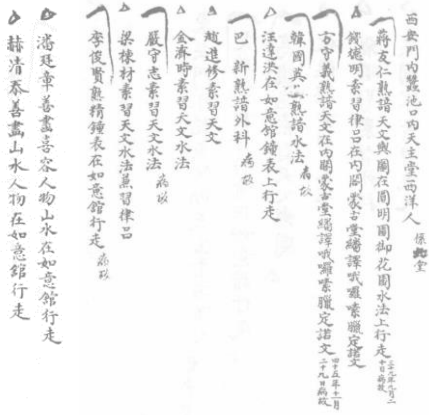 西安門內蠶池口內天主堂西洋人 係北堂
蔣友仁熟諳天文輿圖在圓明園御花園水法上行走
錢德明素習律呂在內閣蒙古堂繙譯哦囉嗦臘定諾文
方守義熟諳天文在內閣蒙古堂繙譯哦囉嗦臘定諾文 四十五年十一月二十九日病故
韓國英熟諳水法 病故
汪達洪在如意館鐘表上行走
巴新熟諳外科 病故
趙進修素習天文
金濟時素習天文水法
嚴守志素習天文水法 病故
梁棟材素習天文水法兼習律呂
李俊賢熟精鐘表在如意館行走 病故
潘廷章善畫喜容人物山水在如意館行走
赫清泰善畫山水人物在如意館行走